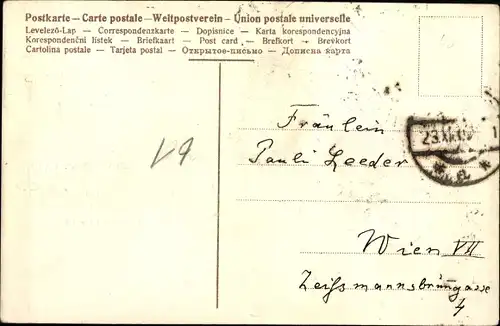 Postkarte — Carte postale — Weltpostverein — Union postale universelle
Levelező-Lap — Correspondenzkarte — Dopisnice — Karta korespondencyjna
Korespondenční listek — Briefkaart — Post card — Brefkort — Brevkort
Cartolina postale — Tarjeta postal — Открытое-письмо — Дописна карта
V9
Fräulein
Pauli Leeder
Wien VII
Zeißmannsbrunngasse
4